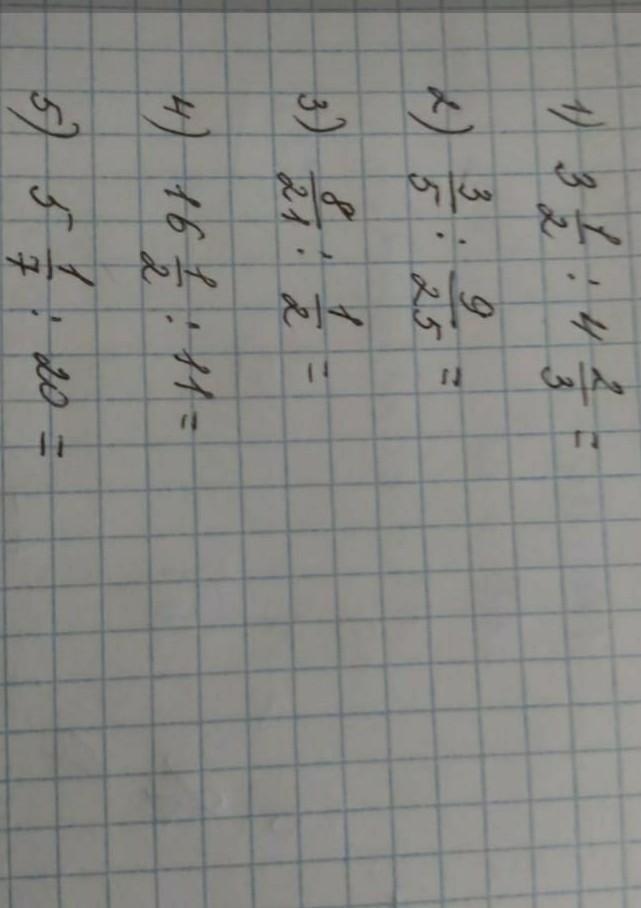 1) 3 1/2 : 4 2/3 =
2) 3/5 : 9/25 =
3) 8/21 : 1/2 =
4) 16 1/2 : 11 =
5) 5 1/7 : 20 =